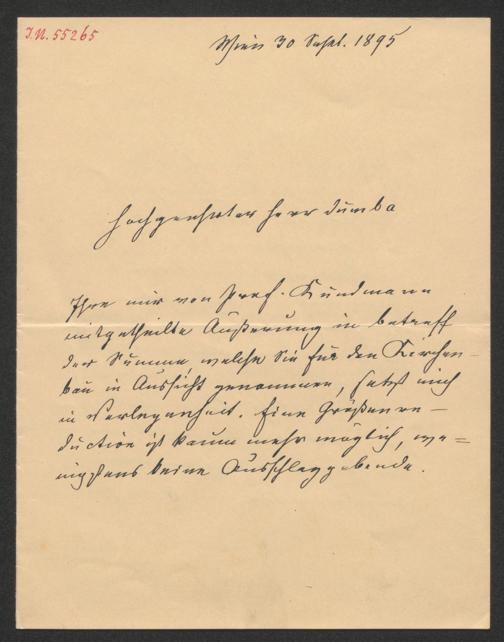 I.N. 55265
Wien 30 Sept. 1895
Hochgeehrter Herr Dumba
Ihre mir von Prof. Kundmann
mitgetheilte Äußerung in betreff
der Summe, welche Sie für den Kirchen-
bau in Aussicht genommen, setzt mich
in Verlegenheit. Eine Größenre-
duction ist kaum mehr möglich, we=
nigstens keine Ausschlaggebende.